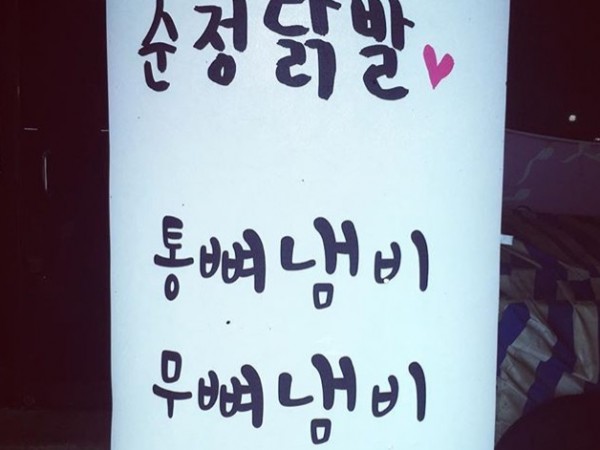 순정닭발
통뼈냄비
무뼈냄비